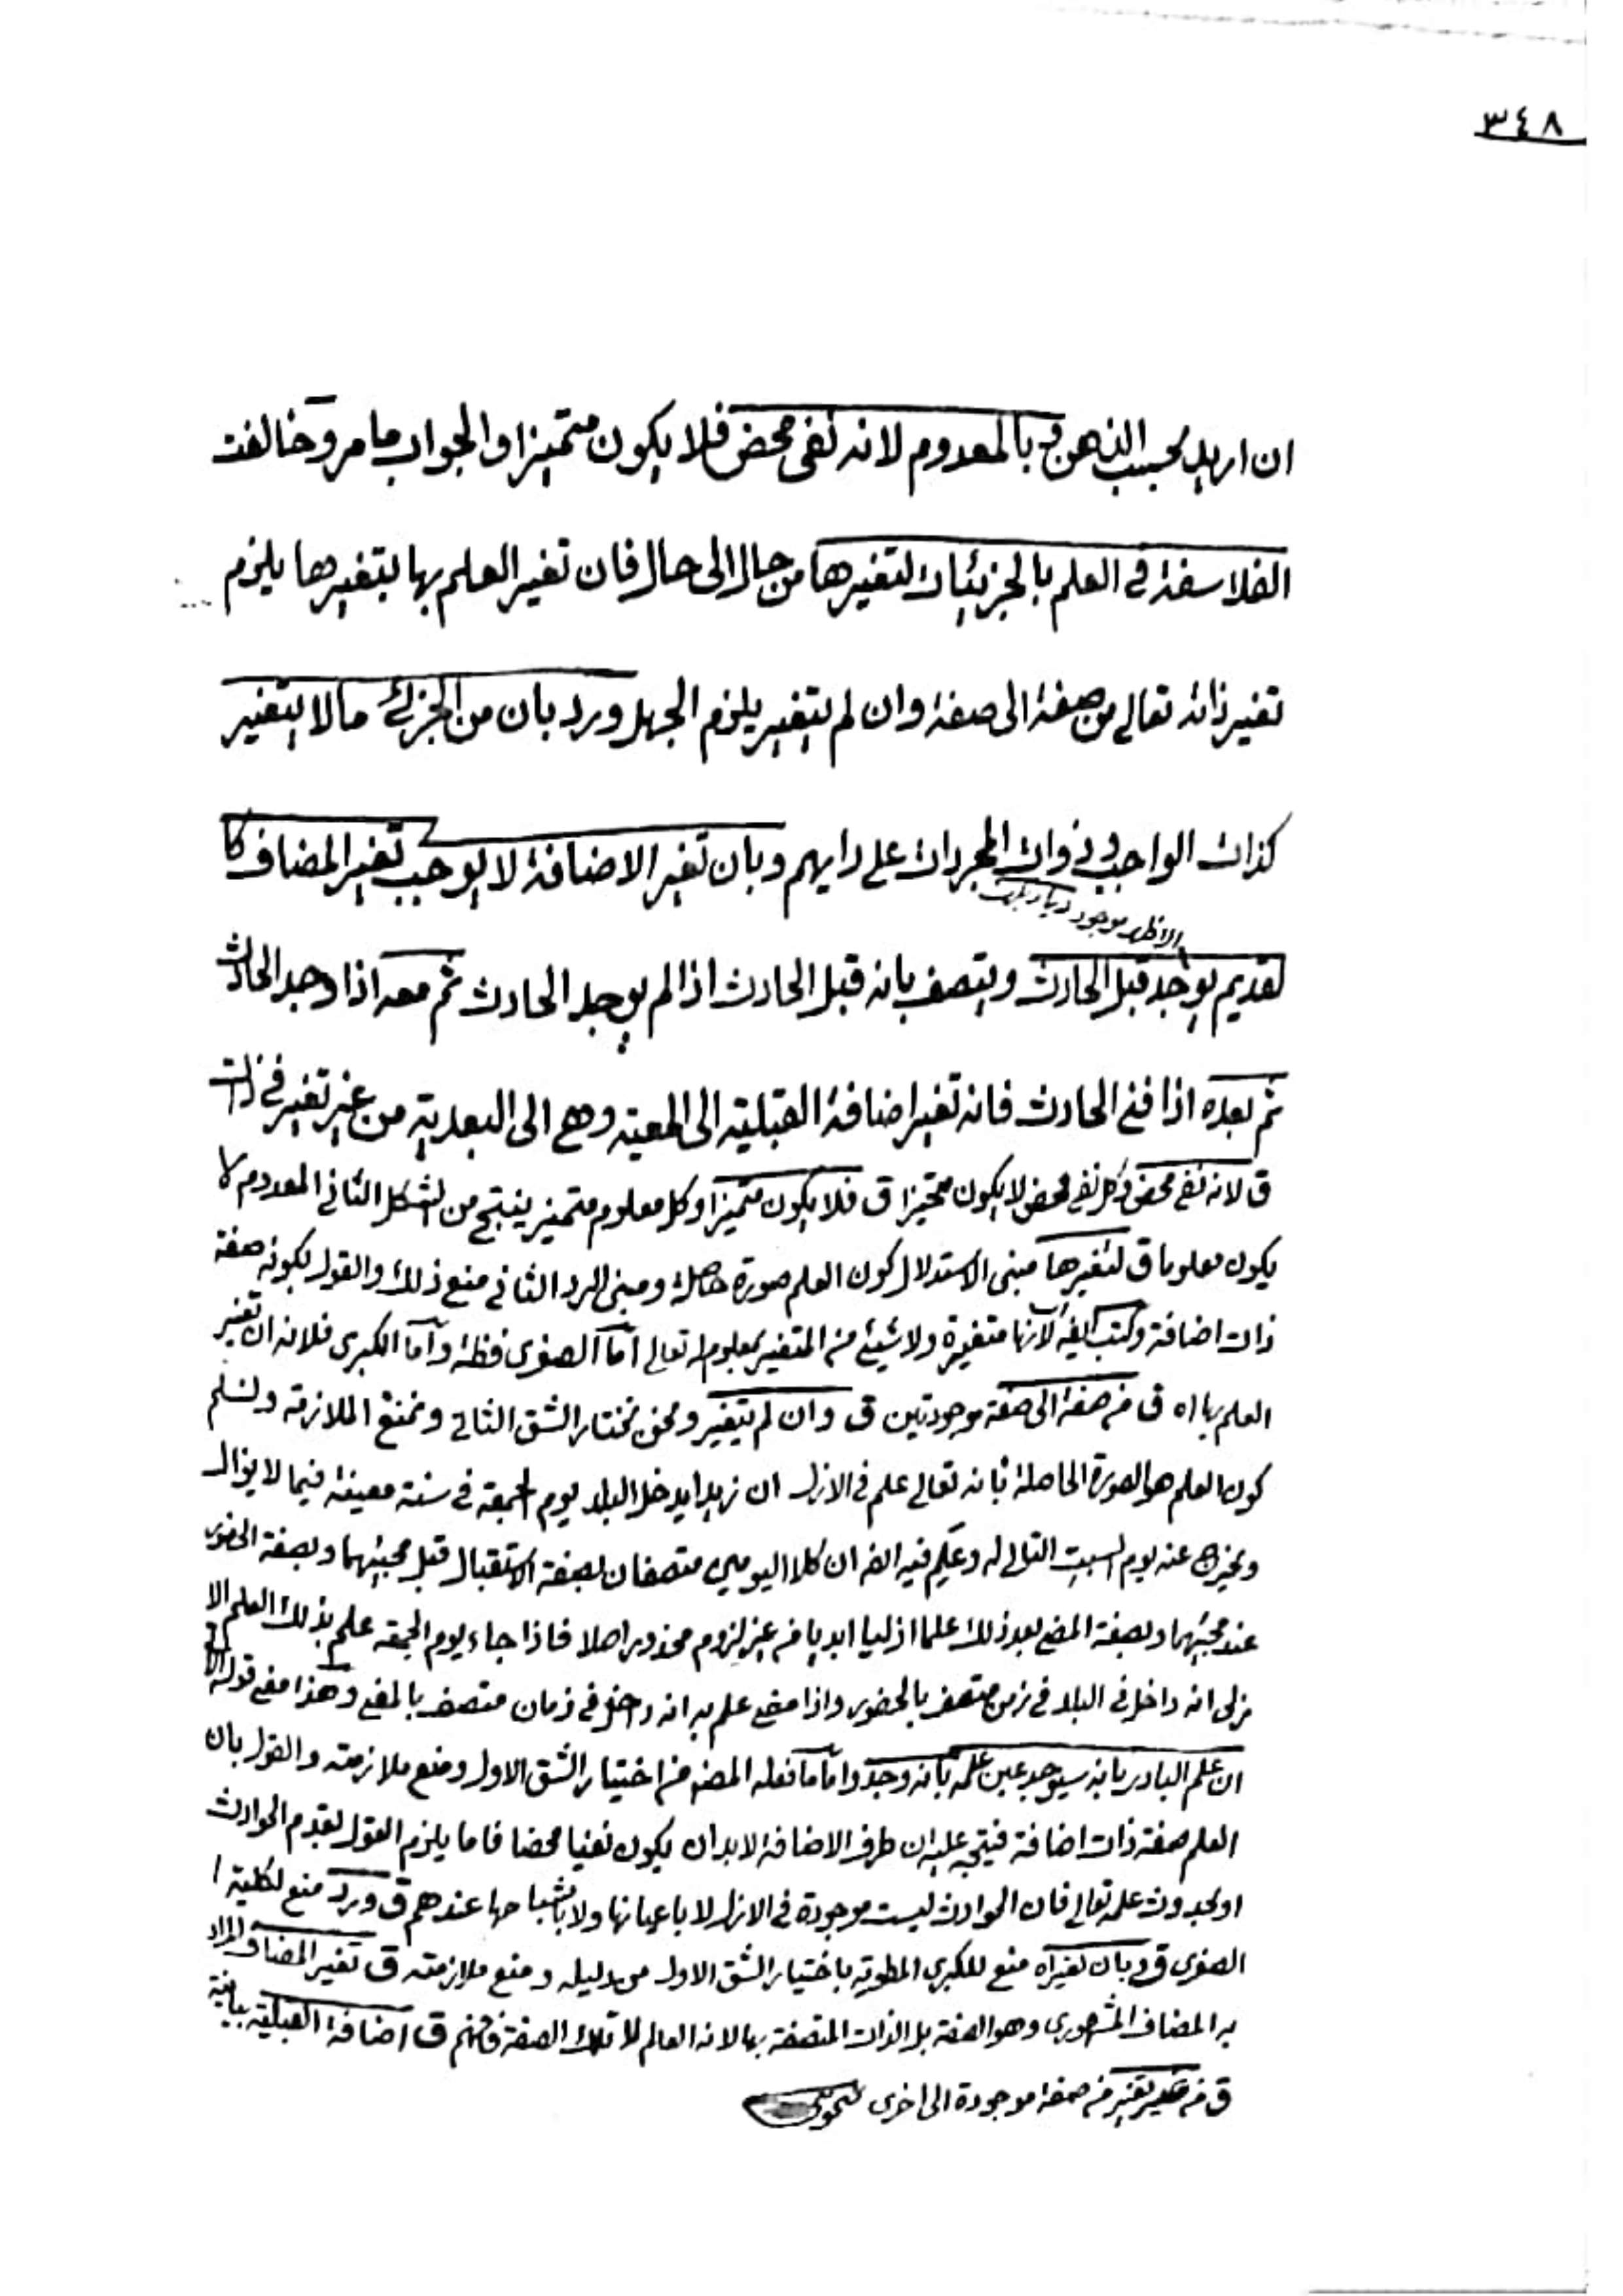 ٣٤٨
ان اريد بحسب الذهن وبالمعدوم لانه نفى محض فلا يكون متميزا والجواب ما مر وخالفت
الفلاسفة فى العلم بالجزئيات لتغيرها من حال الى حال فان تغير العلم بها بتغيرها يلزم
تغير ذاته تعالى من صفة الى صفة وان لم يتغير يلزم الجهل ورد بان من الجزئى ما لا يتغير
كذات الواجب وذوات المجردات على رايهم وبان تغير الاضافة لا يوجب تغير المضاف كا
الاظهر موجود
لقديم يوجد قبل الحادث ويتصف بانه قبل الحادث اذا لم يوجد الحادث ثم معه اذا وجد الحادث
ثم بعده اذا فنى الحادث فانه تغير اضافة القبلية الى المعية وهى الى البعدية من غير تغير فى ذات
ق لانه نفى محض وكل نفى محض لا يكون متحيزا ق فلا يكون متميزا وكل معلوم متميز ينتج من الشكل الثانى المعدوم لا
يكون معلوما ق لتغيرها مبنى الاستدلال كون العلم صورة حاصلة ومبنى الرد الثانى منع ذلك والقول بكونه صفة
ذات اضافة وكتب ايضا لانها متغيرة ولا شيئ من المتغير بمعلوم له تعالى اما الصغرى فظة واما الكبرى فلانه ان تغير
العلم بها اه ق من صفة الى صفة موجودتين ق وان لم يتغير ونحن نختار الشق الثانى ونمنع الملازمة ونسلم
كون العلم هو الصورة الحاصلة بانه تعالى علم فى الازل ان زيدا يدخل البلد يوم الجمعة فى سنة معينة فيما لا يزال
ويخرج عنه يوم السبت التالى له وعلم فيه ايضا ان كلا اليومين متصفان بصفة الاستقبال قبل مجيئهما وبصفة الحضور
عند مجيئهما وبصفة المضى بعد ذلك علما ازليا ابديا من غير لزوم محذور اصلا فاذا جاء يوم الجمعة علم بذلك العلم الا
زلى انه داخل فى البلد فى زمن متصف بالحضور واذا مضى علم به انه دخل فى زمان متصف بالمضى وهذا معنى قوله
ان علم البارى بانه سيوجد عين علمه بانه وجد واما ما فعله المصنف من اختيار الشق الاول ومنع ملازمته والقول بان
العلم صفة ذات اضافة فيتجه عليه ان طرف الاضافة لابد ان يكون نفيا محضا فاما يلزم القول بقدم الحوادث
او بحدوث علمه تعالى فان الحوادث ليست موجودة فى الازل لا باعيانها ولا باشباحها عندهم ق ورد منع لكلية ا
الصغرى ق وبان تغير اه منع للكبرى المطوية باختيار الشق الاول من دليله ومنع ملازمته ق تغير المضاف المراد
به المضاف المشهورى وهو الصفة بل الذات المتصفة بها لانه العالم لا تلك الصفة فافهم ق اضافة القبلية بيانية
ق من غير تغير من صفة موجودة الى اخرى